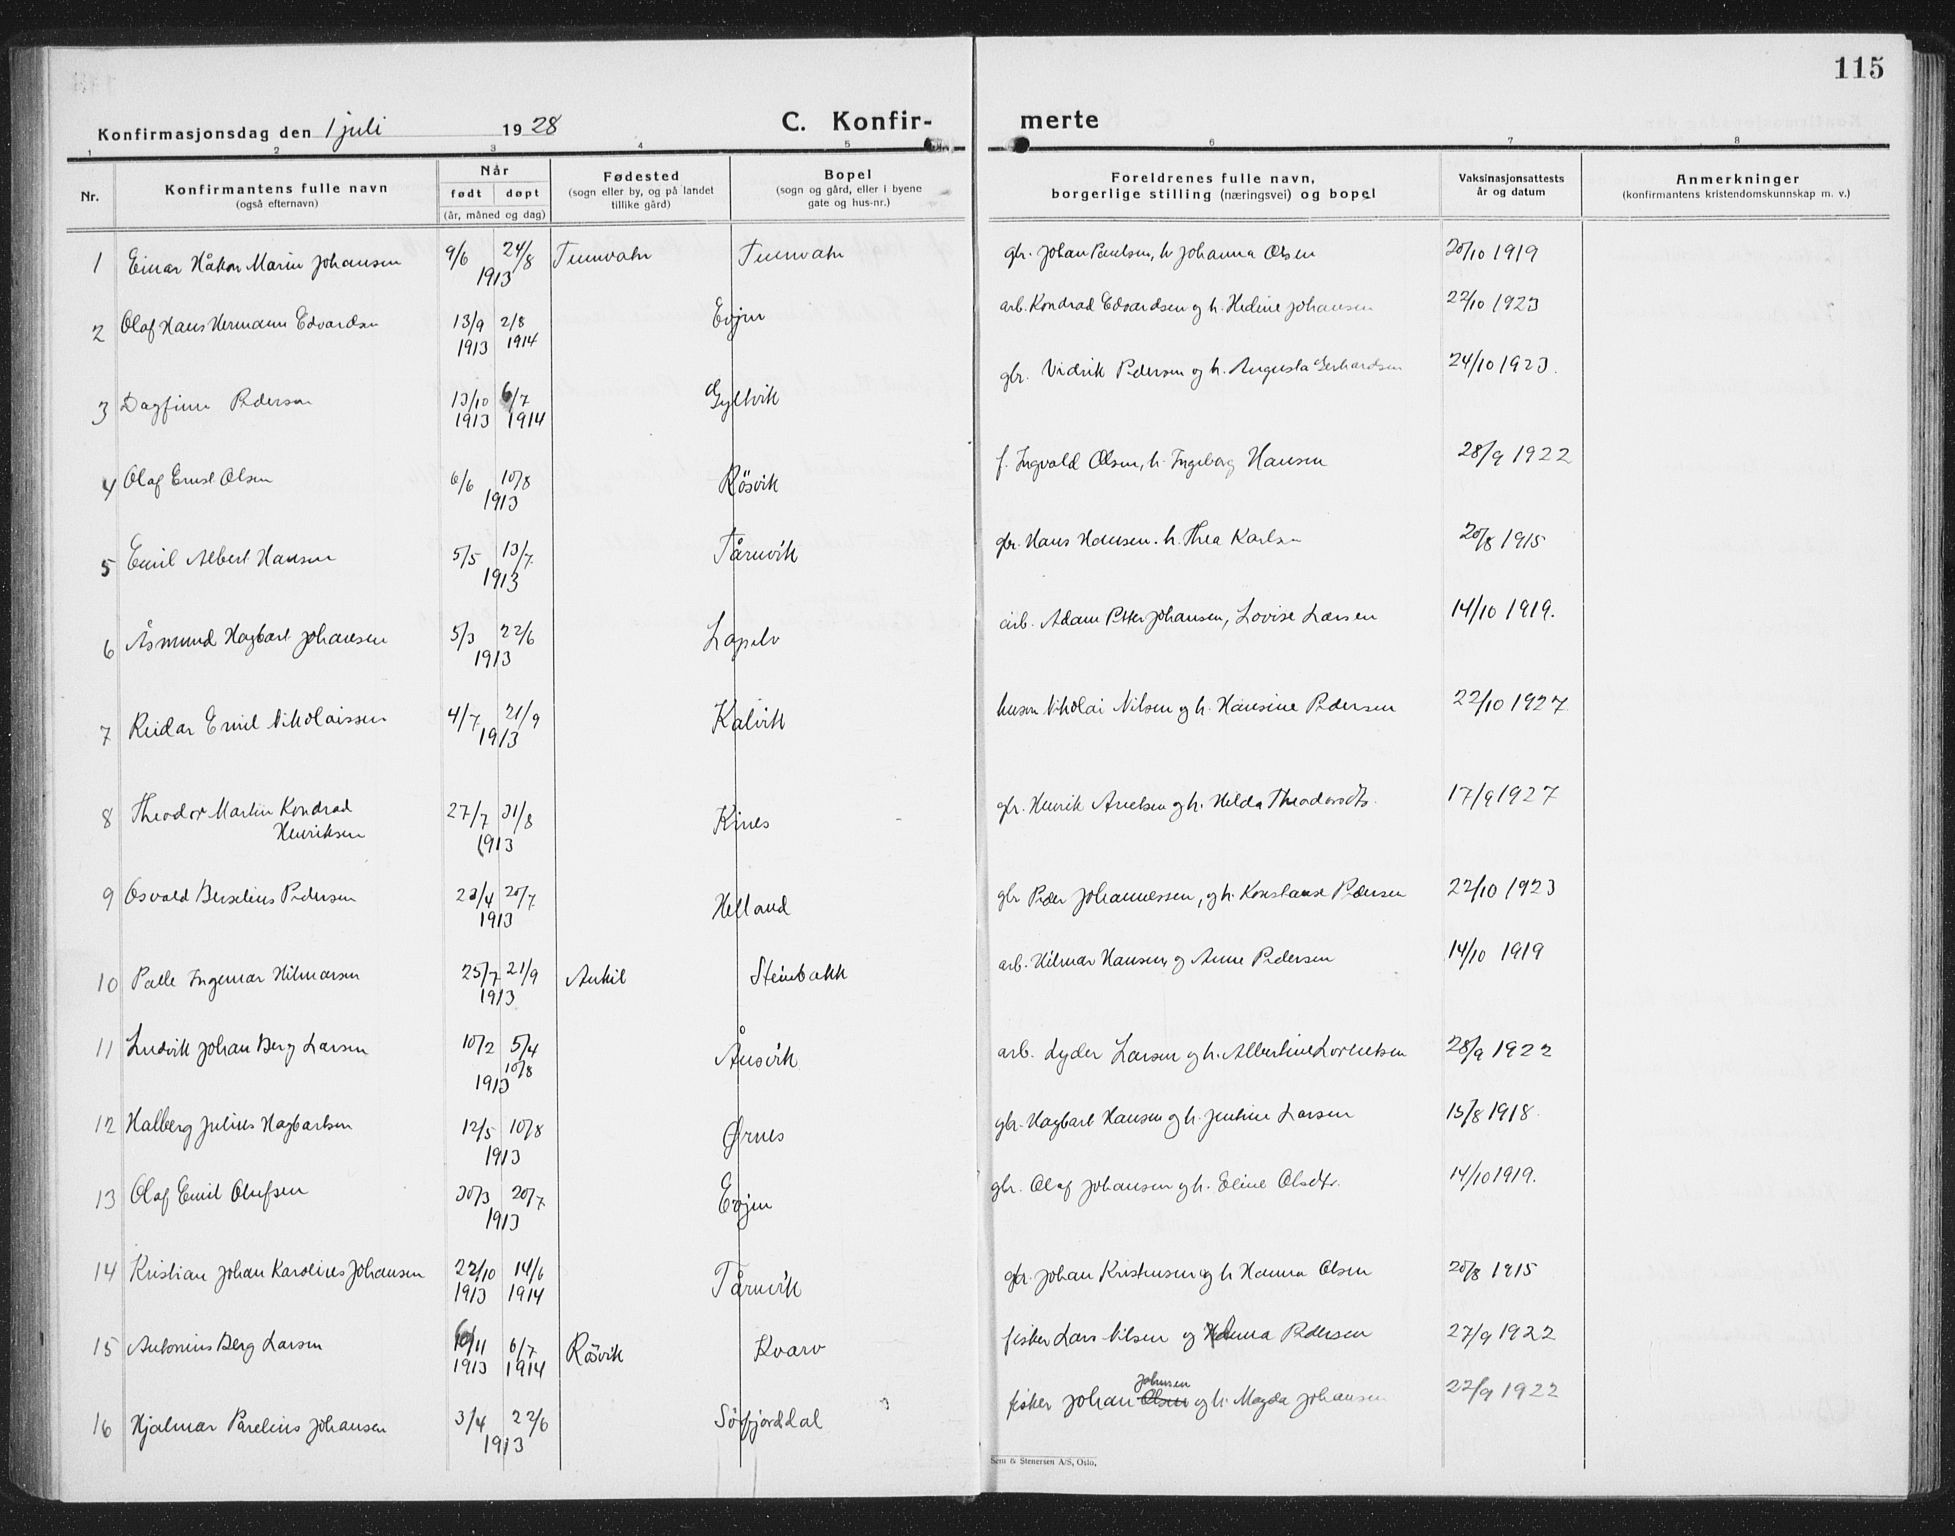 115
Konfirmasjonsdag den 1 juli 1928 C. Konfirmerte
1 2 3 4 5 6 7 8
Nr.
Konfirmantens fulle navn
(også efternavn)
Når
født døpt
(år, måned og dag)
Fødested
(sogn eller by, og på landet
tillike gård)
Bopel
(sogn og gård, eller i byene
gate og hus-nr.)
Foreldrenes fulle navn,
borgerlige stilling (næringsvei) og bopel
Vaksinasjonsattests
år og datum
Anmerkninger
(konfirmantens kristendomskunnskap m. v.)
1 Einar Håkon Marin Johansen 9/6 24/8 1913 gbr. Johan Paulsen, h. Johanna Olsen 20/10 1919
2 Olaf Hans Hermann Edvardsen 13/9 1913 2/8 1914 Evjen arb. Kondrad Edvardsen og h. Hedine Johansen 22/10 1923
3 Dagfinn Pedersen 13/10 1913 6/7 1914 Gyltvik gbr. Vidrik Pedersen og h. Augusta Gerhardsen 24/10 1923.
4 Olaf Ernst Olsen 6/6 10/8 1913 Rösvik f. Ingvald Olsen, h. Ingeborg Hansen 28/9 1922
5 Emil Albert Hansen 5/5 13/7 1913 Tårnvik gbr. Hans Hansen. h. Thea Karlsen 20/8 1915
6 Åsmund Hagbart Johansen 5/3 22/6 1913 Lapelv arb. Adam Petter Johansen, Lovise Larsen 14/10 1919.
7 Reidar Emil Nikolaissen 4/7 21/9 1913 Kalvik Nikolai Nilsen og h. Hansine Pedersen 22/10 1927
8 Theodor Martin Kondrad
Henriksen 27/7 31/8 1913 Kines gbr. Henrik Arntsen og h. Hilda Theodorsdtr. 17/9 1927
9 Osvald Berselius Pedersen 23/4 20/7 1913 Helland gbr Peder Johannessen, og h. Konstanse Pedersen 22/10 1923
10 Palle Ingemar Hilmarsen 25/7 21/9 1913 Steinbakk arb. Hilmar Hansen og Anne Pedersen 14/10 1919
11 Ludvik Johan Berg Larsen 10/2 5/4 10/8 1913 Ånsvik arb. Lyder Larsen og h. Albertine Lorentsen 28/9 1922
12 Halberg Julius Hagbartsen 12/5 10/8 1913 Ørnes gbr. Hagbart Hansen og h. Jentine Larsen 15/8 1918.
13 Olaf Emil Olufsen 30/3 20/7 1913 Evjen gbr. Olaf Johansen og h. Eline Olsdtr. 14/10 1919.
14 Kristian Johan Karolius Johansen 22/10 1913 14/6 1914 Tårnvik gbr. Johan Kristensen og h. Hanna Olsen 20/8 1915
15 Antonius Berg Larsen 1913 6/7 1914 Rösvik Kvarv fisker Lars Nilsen og Pedersen 27/9 1922
16 Hjalmar Parelius Johansen 3/4 22/6 1913 Sörfjorddal fisker Johan Olsen Johnsen og h. Magda Johansen 22/9 1922
Sem & Stenersen A/S, Oslo.